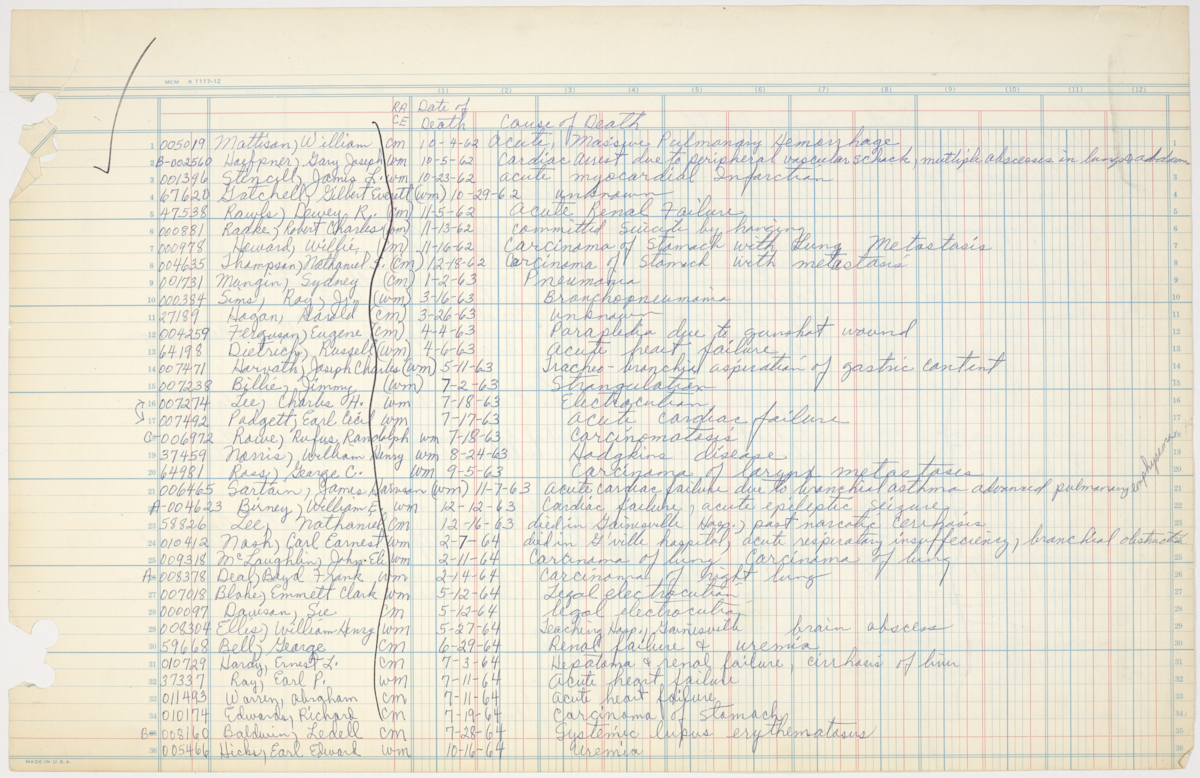 MEM A 1117-12
(1) (2) (3) (4) (5) (6) (7) (8) (9) (10) (11) (12)
RA Date of
CE Death Cause of Death
1 005019 Mattison, William cm 10-4-62 Acute, Massive Pulmonary Hemorrhage 1
2 B-002560 Heppner, Gary Joseph wm 10-5-62 Cardiac Arrest due to peripheral vascular schock, multiple abscesses in lungs & addom 2
3 001396 Stencil, James L. wm 10-23-62 acute myocardial Infarction 3
4 67620 Gatchell, Gilbert Everett (wm) 10-29-62 unknown 4
5 47538 Rawls, Dewey R. (cm) 11-5-62 Acute Renal Failure 5
6 000881 Radke, Robert Charles (wm) 11-13-62 committed Suicide by hanging 6
7 000978 Howard, Willie, (cm) 11-16-62 Carcinoma of Stomach with Lung Metastasis 7
8 004635 Thompson, Nathaniel J. (cm) 12-18-62 Carcinoma of Stomach with metastasis 8
9 001731 Mangin, Sydney (cm) 1-2-63 Pneumonia 9
10 000384 Sims, Roy, Jr. (wm) 3-16-63 Bronchopneumonia 10
11 27189 Hogan, Harold (cm) 3-26-63 unknown 11
12 004259 Ferguson, Eugene (cm) 4-4-63 Parapledia due to gunshot wound 12
13 64198 Dietrich, Russell (wm) 4-6-63 Acute heart failure 13
14 007471 Horvath, Joseph Charles (wm) 5-11-63 Tracheo-bronchial aspiration of gastric content 14
15 007238 Billie, Jimmy (wm) 7-2-63 Strangulation 15
16 007274 Lee, Charlie H. wm 7-18-63 Electrocution 16
17 007492 Padgett, Earl Cecil wm 7-17-63 Acute cardiac failure 17
C-006972 Rowe, Rufus Randolph wm 7-18-63 Carcinomatosis 18
19 37459 Norris, William Henry wm 8-24-63 Hodgkins disease 19
20 64981 Ross, George C. wm 9-5-63 Carcinoma of larynx metastases 20
21 006465 Sartain, James Dawson (wm) 11-7-63 acute cardiac failure due to bronchial astama advanced pulmonary emphysema 21
A-004623 Birney, William E. wm 12-12-63 Cardiac failure, acute epileptic seizure 22
23 58826 Lee, Nathaniel cm 12-16-63 died in Gainesville Hosp., post narcotic cerrhosis 23
24 010412 Nash, Earl Earnest wm 2-7-64 died in G'ville hospital, acute respiratory insuffeciency, branchial obstruction
25 009318 McLaughlin, John Eli wm 2-11-64 Carcinoma of lung Carcinoma of lung 25
A-008378 Deal, Boyd Frank wm 2-14-64 Carcinoma of right lung 26
27 007018 Blake, Emmett Clark wm 5-12-64 Legal electrocution 27
28 000097 Davison, Sie cm 5-12-64 Legal electrocution 28
29 008304 Ellis, William Henry wm 5-27-64 Teaching Hosp., Gainesville brain abscess 29
30 59668 Bell, George cm 6-29-64 Renal failure & uremia 30
31 010729 Hardy, Ernest L. cm 7-3-64 Hepatoma & renal failure, cirrhosis of liver 31
32 37337 Ray, Earl P. wm 7-11-64 Acute heart failure 32
33 011493 Warren, Abraham cm 7-11-64 acute heart failure 33
34 010174 Edwards, Richard cm 7-19-64 Carcinoma of stomach 34
B-008160 Baldwin, Ledell cm 7-28-64 Systemic lupus erythematosus 35
36 005406 Hicks, Earl Edward wm 10-16-64 Uremia 36
MADE IN U.S.A.